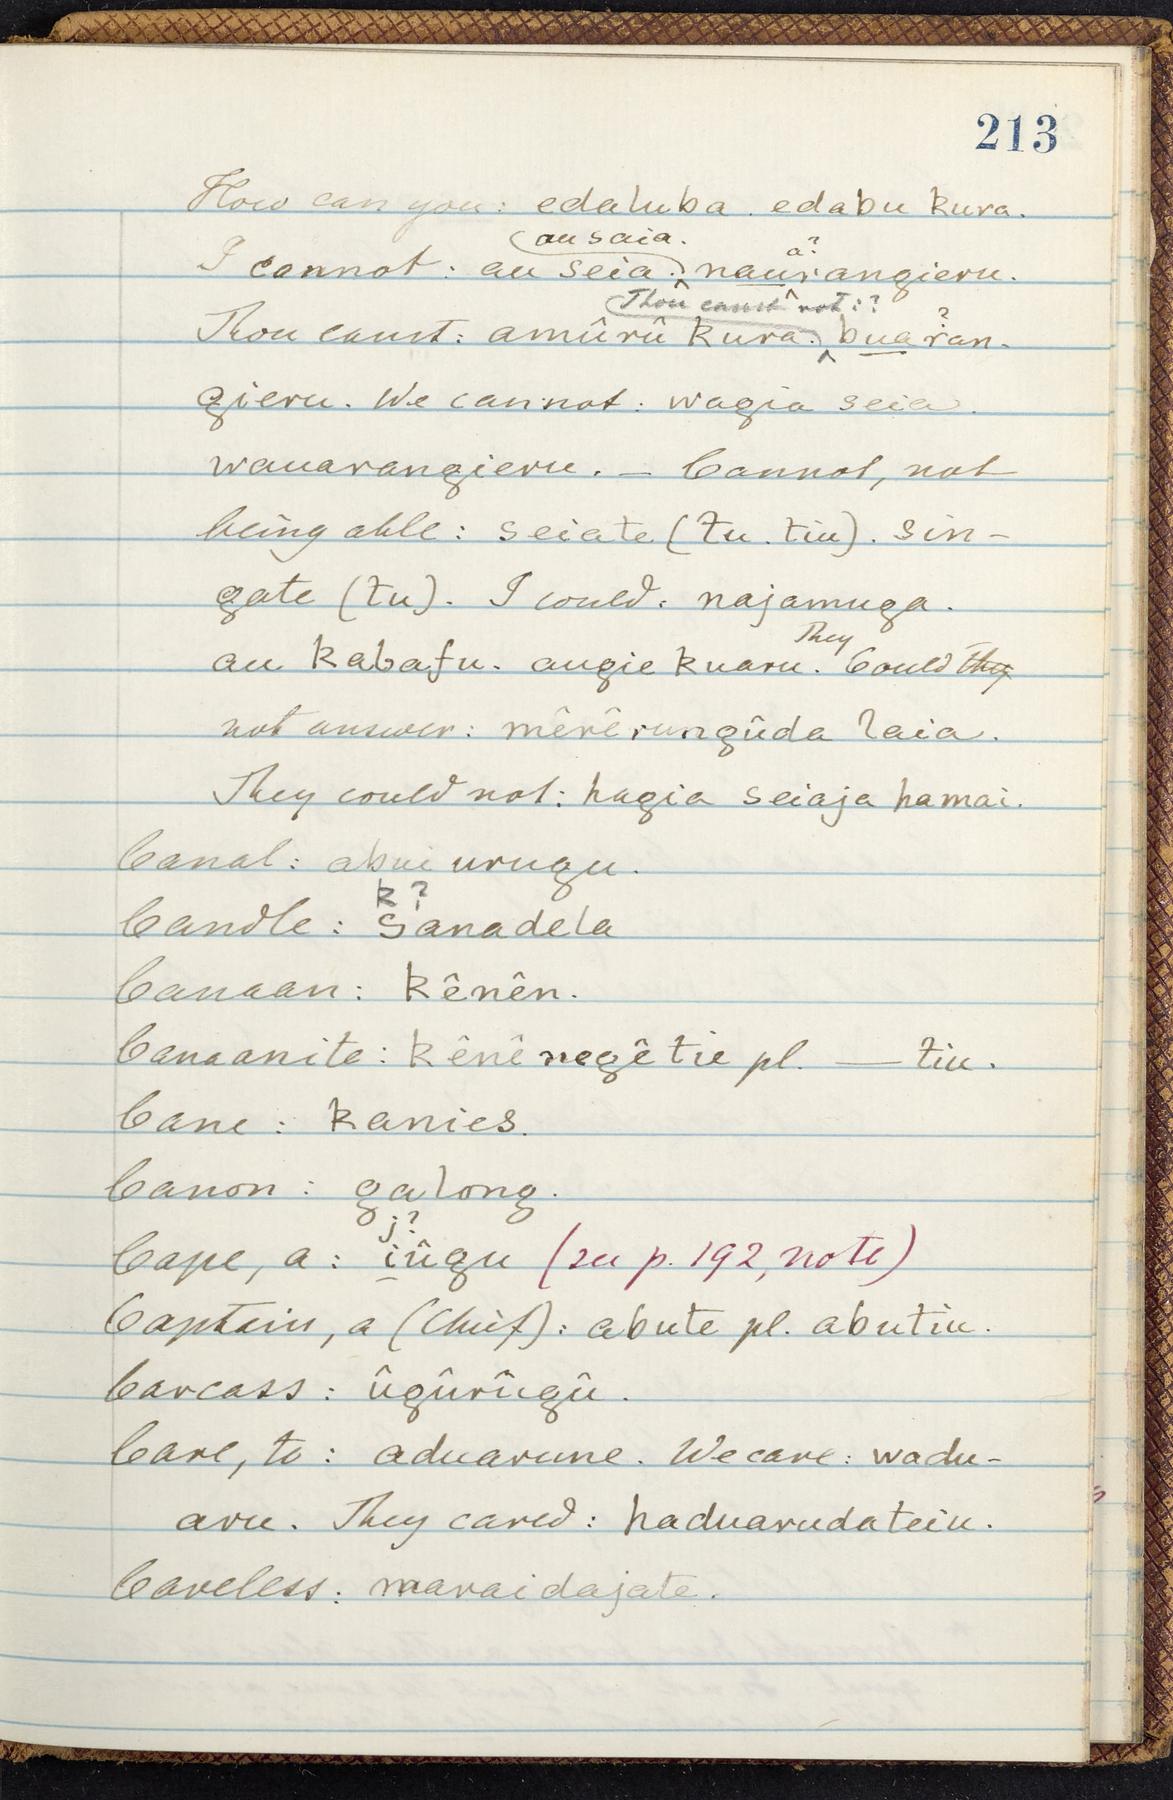 213
How can you: edaluba. edabu kura.
au saia.
a?
I cannot: au seia. naurangieru.
Thou canst not:?
?
Thou canst: amûrû kura. buaran-
gieru. We cannot: wagia seia.
wauarangieru. — Cannot, not
being able: seiate (tu. tiu). sin-
gate (tu). I could: najamuga.
They
au kabafu. augie kuaru. Could they
not answer: mêrêrungûda laia.
They could not: hagia seiaja hamai.
Canal: abui urugu.
k?
Candle: sanadela
Canaan: kênên.
Canaanite: kênênegêtie pl. — tiu.
Cane: kanies.
Canon: galong.
j?
Cape, a: iûgu (see p. 192, note)
Captain, a (Chief): abute pl. abutiu.
Carcass: ûgûrûgû.
Care, to: aduarune. We care: wadu-
aru. They cared: haduarudateiu.
Careless: maraidajate.